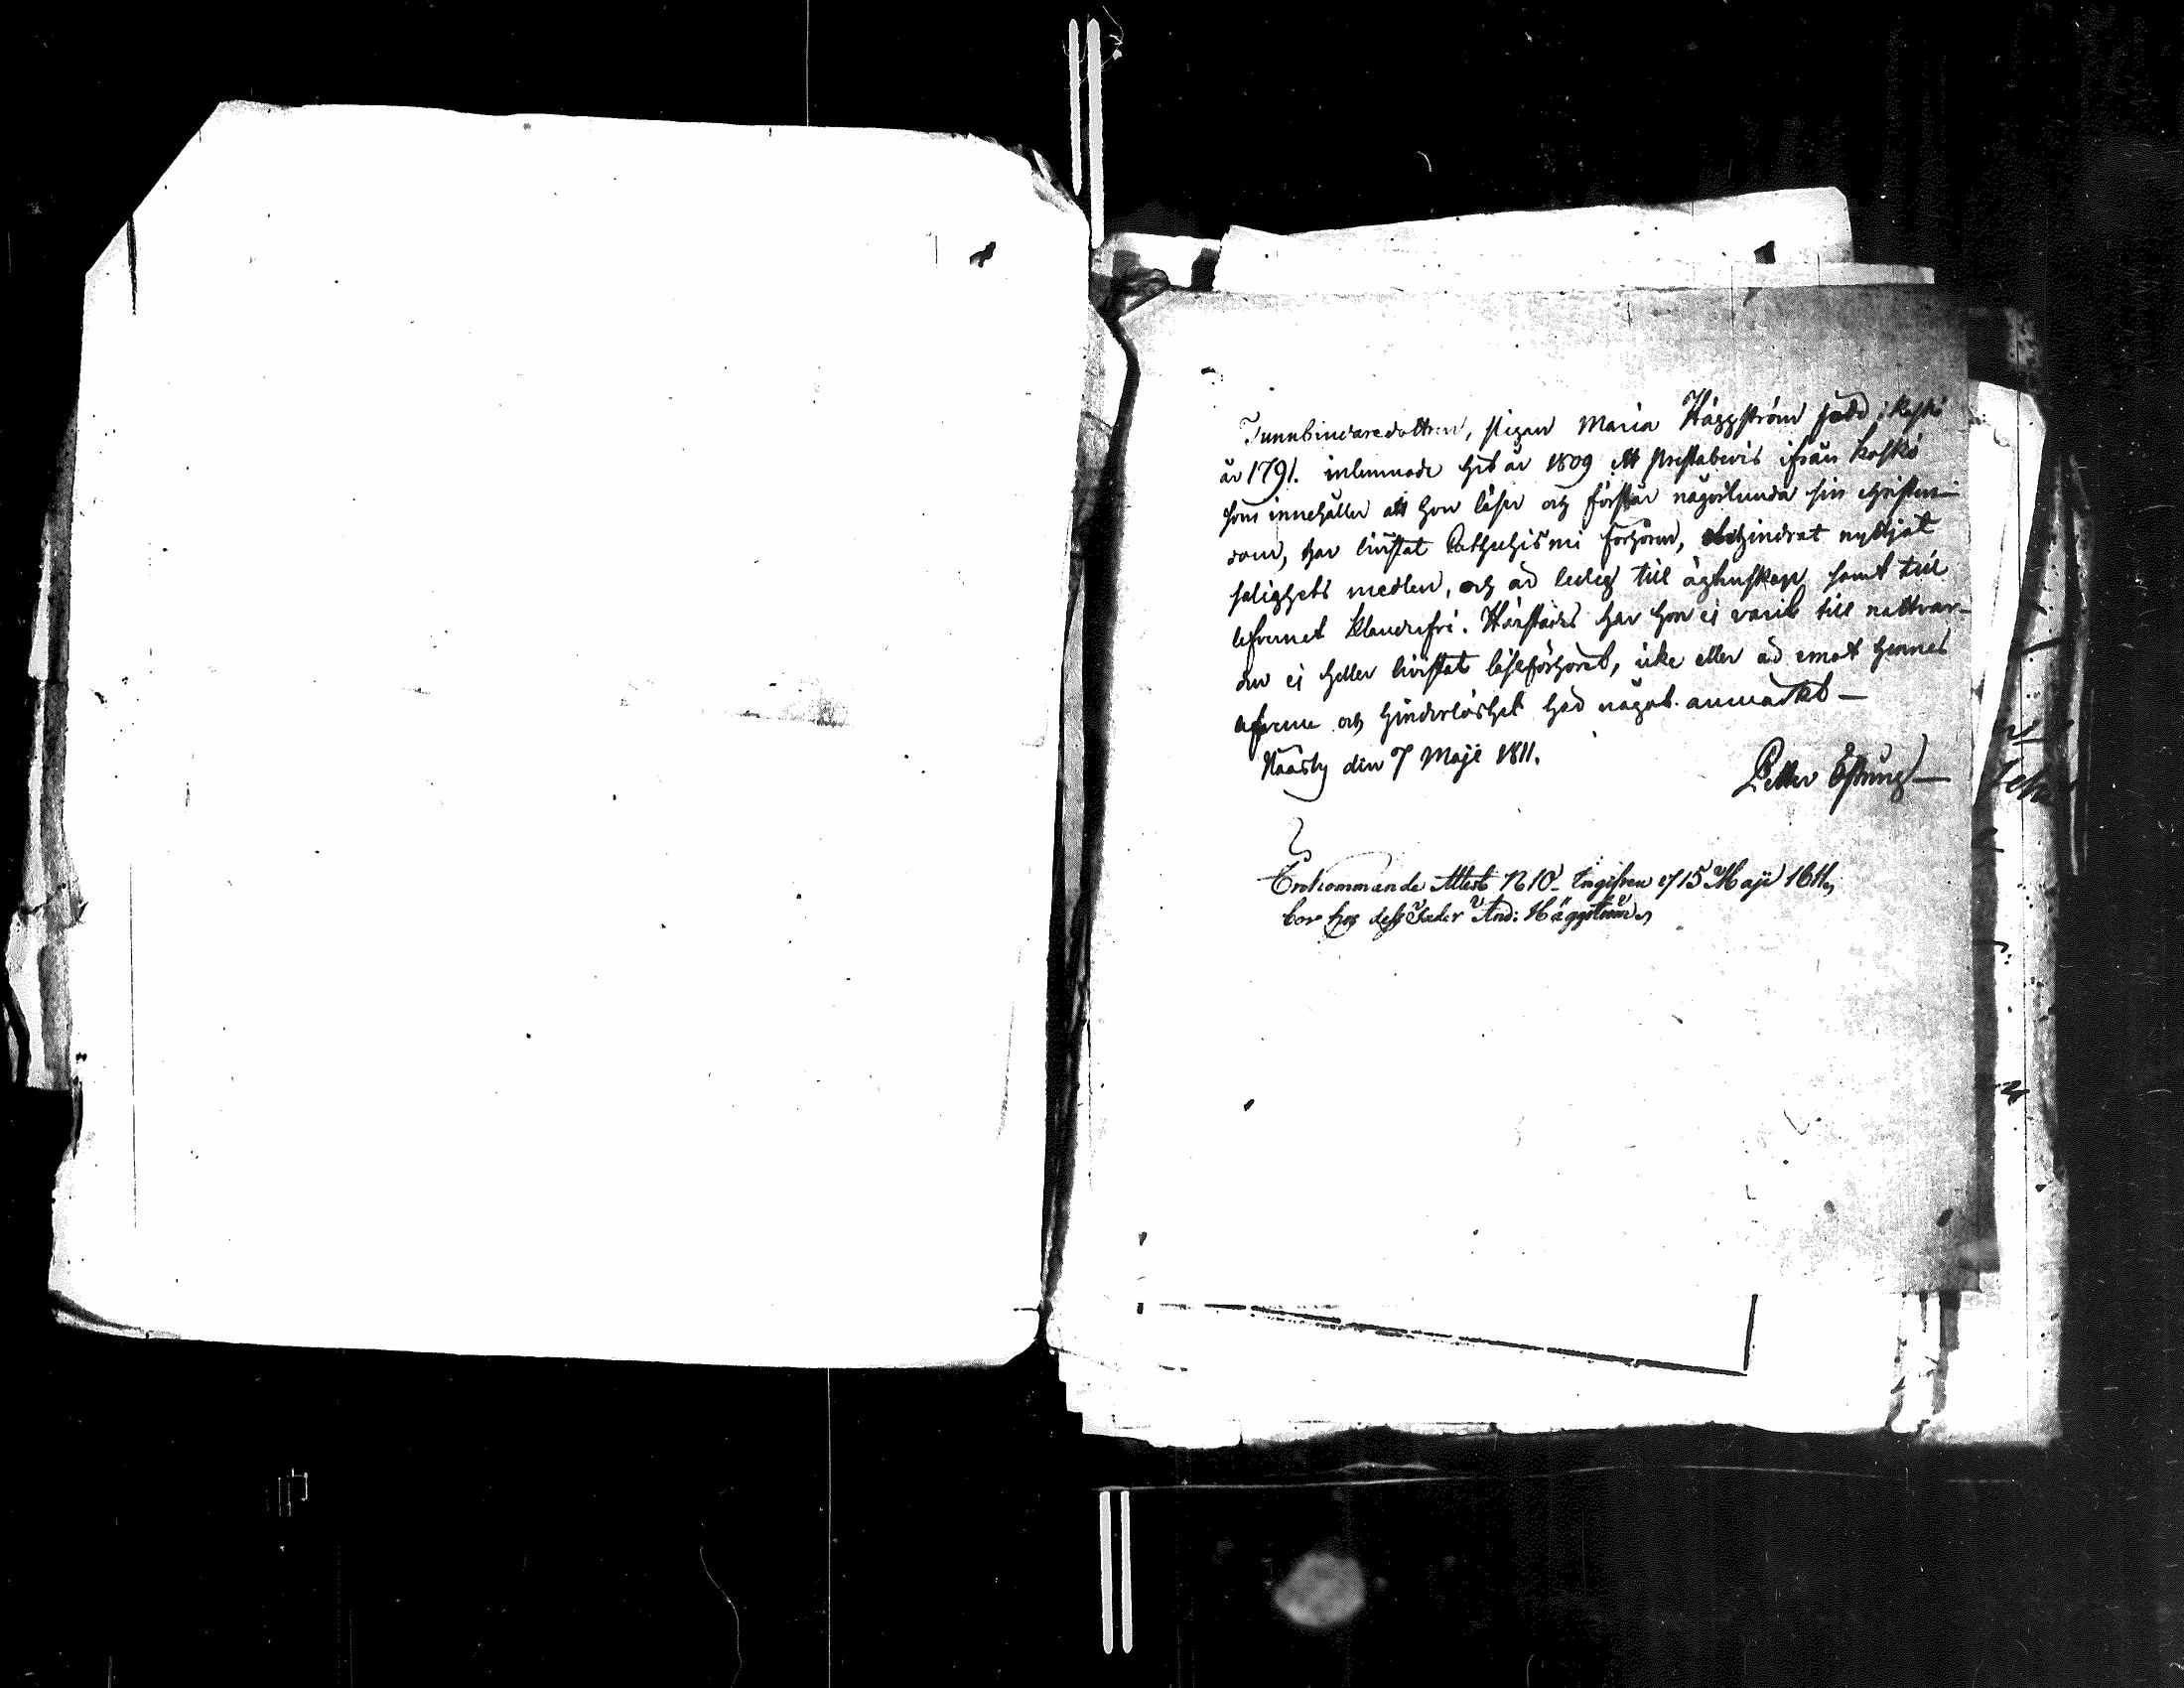 Tunnbindaredottren, pigan Maria Häggström född i Koskö
år 1791. inlemnade hit år 1809 ett prestabevis ifrån Koskö
som innehåller att hon läser och förstår någorlunda sin christen-
dom, har bivistat Cathechismi förhören, obehindrat nyttjat
salighets medlen, och är ledig till ägtenskap samt till
lefvernet klanderfri. Härstädes har hon ej varit till nattvar-
den ej heller bivistat läseförhöret, icke eller är emot hennes
lefverne och hinderlöshet här något anmärkt —
Naarby den 7 Maji 1811.
Petter Östring
Inkommande Attest N 10. Ingifven d 15 Maji 1811,
bor hos dess Fader And: Häggström,